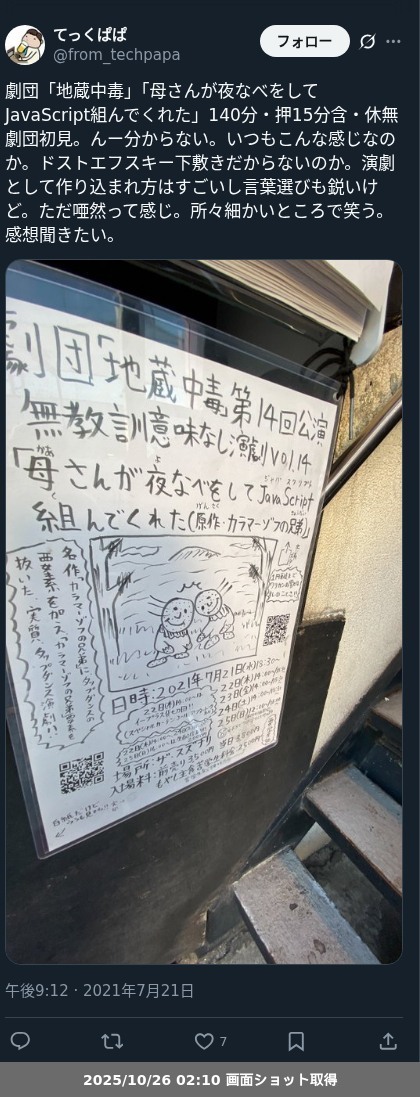 てっくぱぱ
@from_techpapa
フォロー
劇団「地蔵中毒」「母さんが夜なべをして
JavaScript組んでくれた」140分・押15分含・休無
劇団初見。んー分からない。いつもこんな感じなの
か。ドストエフスキー下敷きだからないのか。演劇
として作り込まれ方はすごいし言葉選びも鋭いけ
ど。ただ唖然って感じ。所々細かいところで笑う。
感想聞きたい。
劇団「地蔵中毒」第14回公演
無教訓意味なし演劇vol.14
「母さんが夜なべをしてJavaScript
組んでくれた(原作・カラマーゾフの兄弟)」
名作「カラマーゾフの兄弟」にタップダンスの
要素を加え、カラマーゾフの兄弟要素を
抜いた、実質、タップダンス演劇!!
日時:2021年7月21日(水)18:30〜
22日(木)
23日(金)
24日(土)
25日(日)
場所:ザ・スズナリ
入場料:前売り3500円 当日
午後9:12 · 2021年7月21日
7
2025/10/26 02:10 画面ショット取得